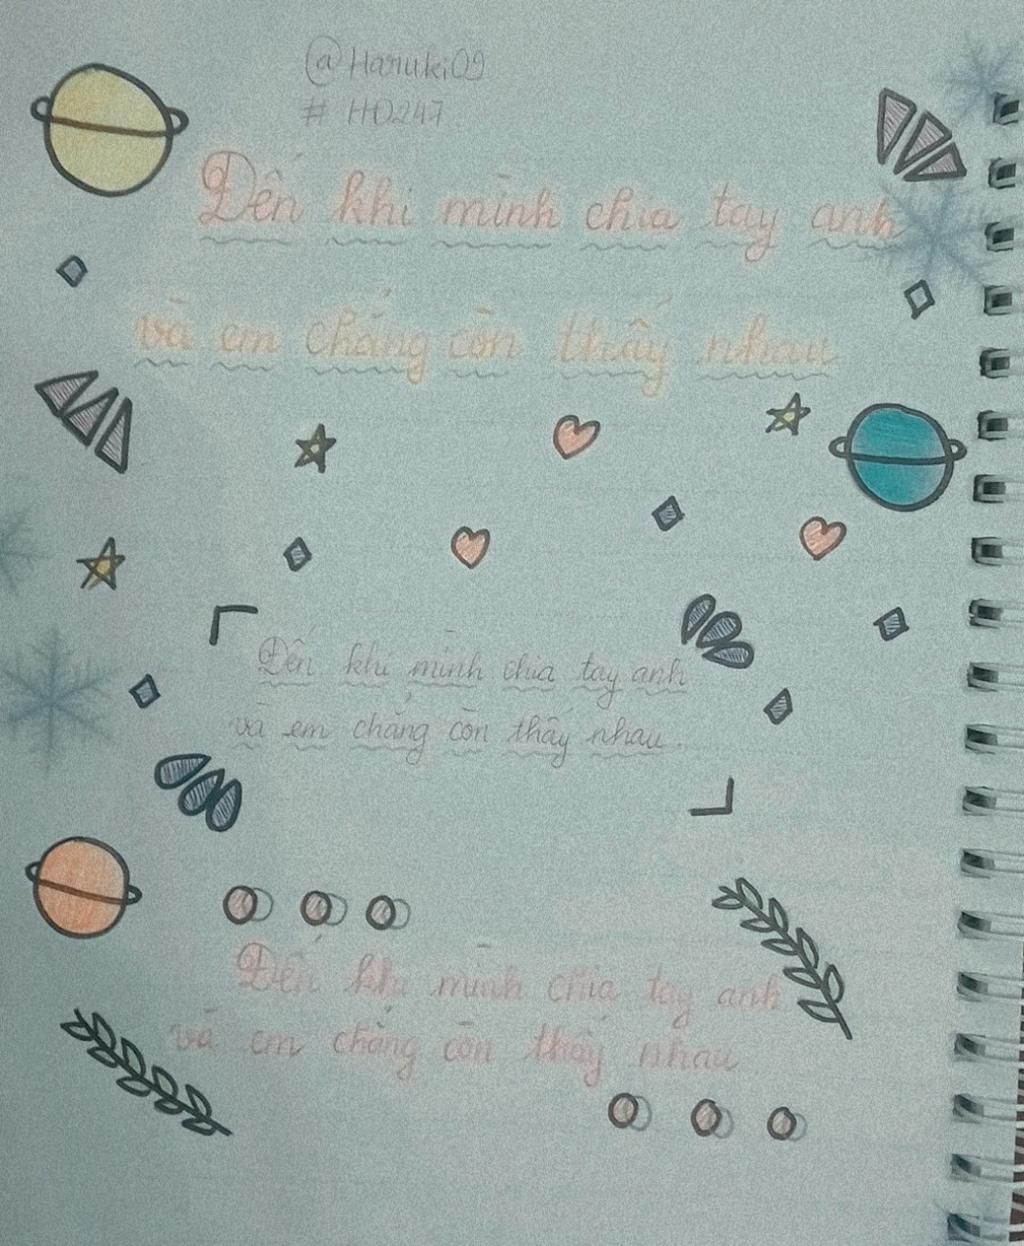 @Haruki09
# HD247
Đến khi mình chia tay anh
và em chẳng còn thấy nhau
Đến khi mình chia tay anh
và em chẳng còn thấy nhau.
Đến khi mình chia tay anh
và em chẳng còn thấy nhau